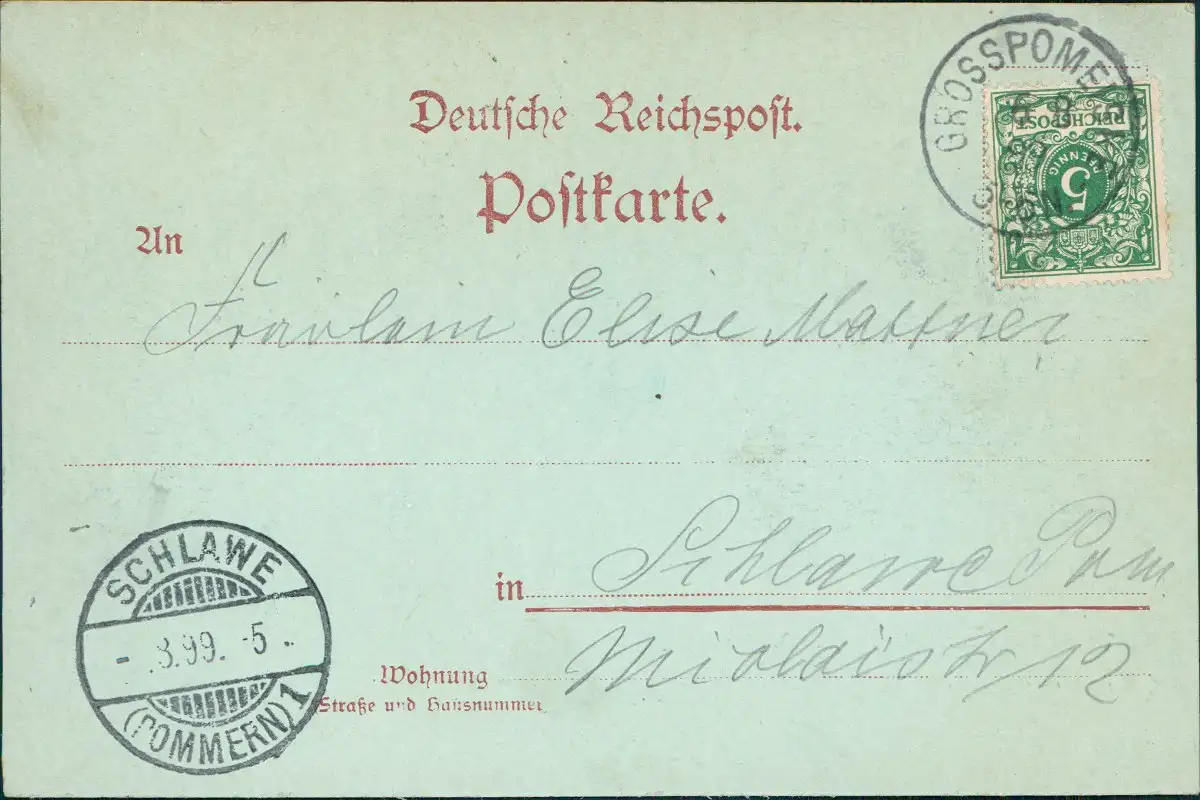 GROSSPOME
REICHSPOST
5
PFENNIG
Deutsche Reichspost.
Postkarte.
An
Fräulein Elise Mattner
in Schlawe Pom
12
Wohnung
Straße und Hausnummer
SCHLAWE
- .8.99. -5 .
(POMMERN) 1